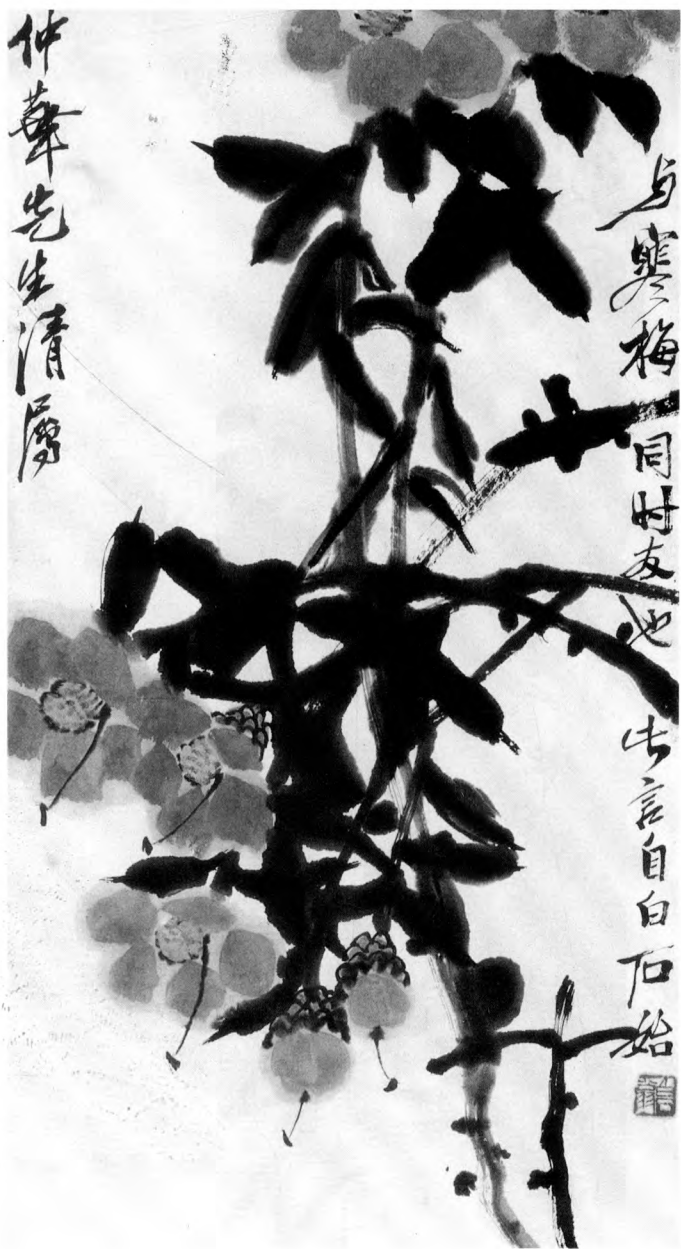 与寒梅同时友也 此言自白石始
仲华先生清属